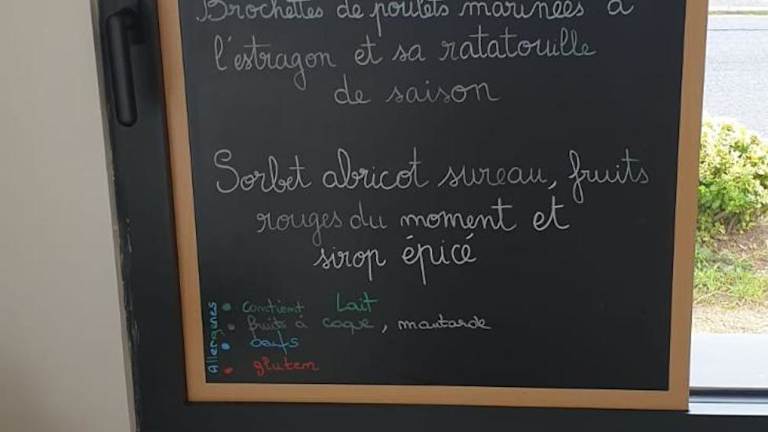 Brochettes de poulets marinées à
l'estragon et sa ratatouille
de saison
Sorbet abricot sureau, fruits
rouges du moment et
sirop épicé
Allergènes
• contient Lait
• fruits à coque, moutarde
• oeufs
• gluten